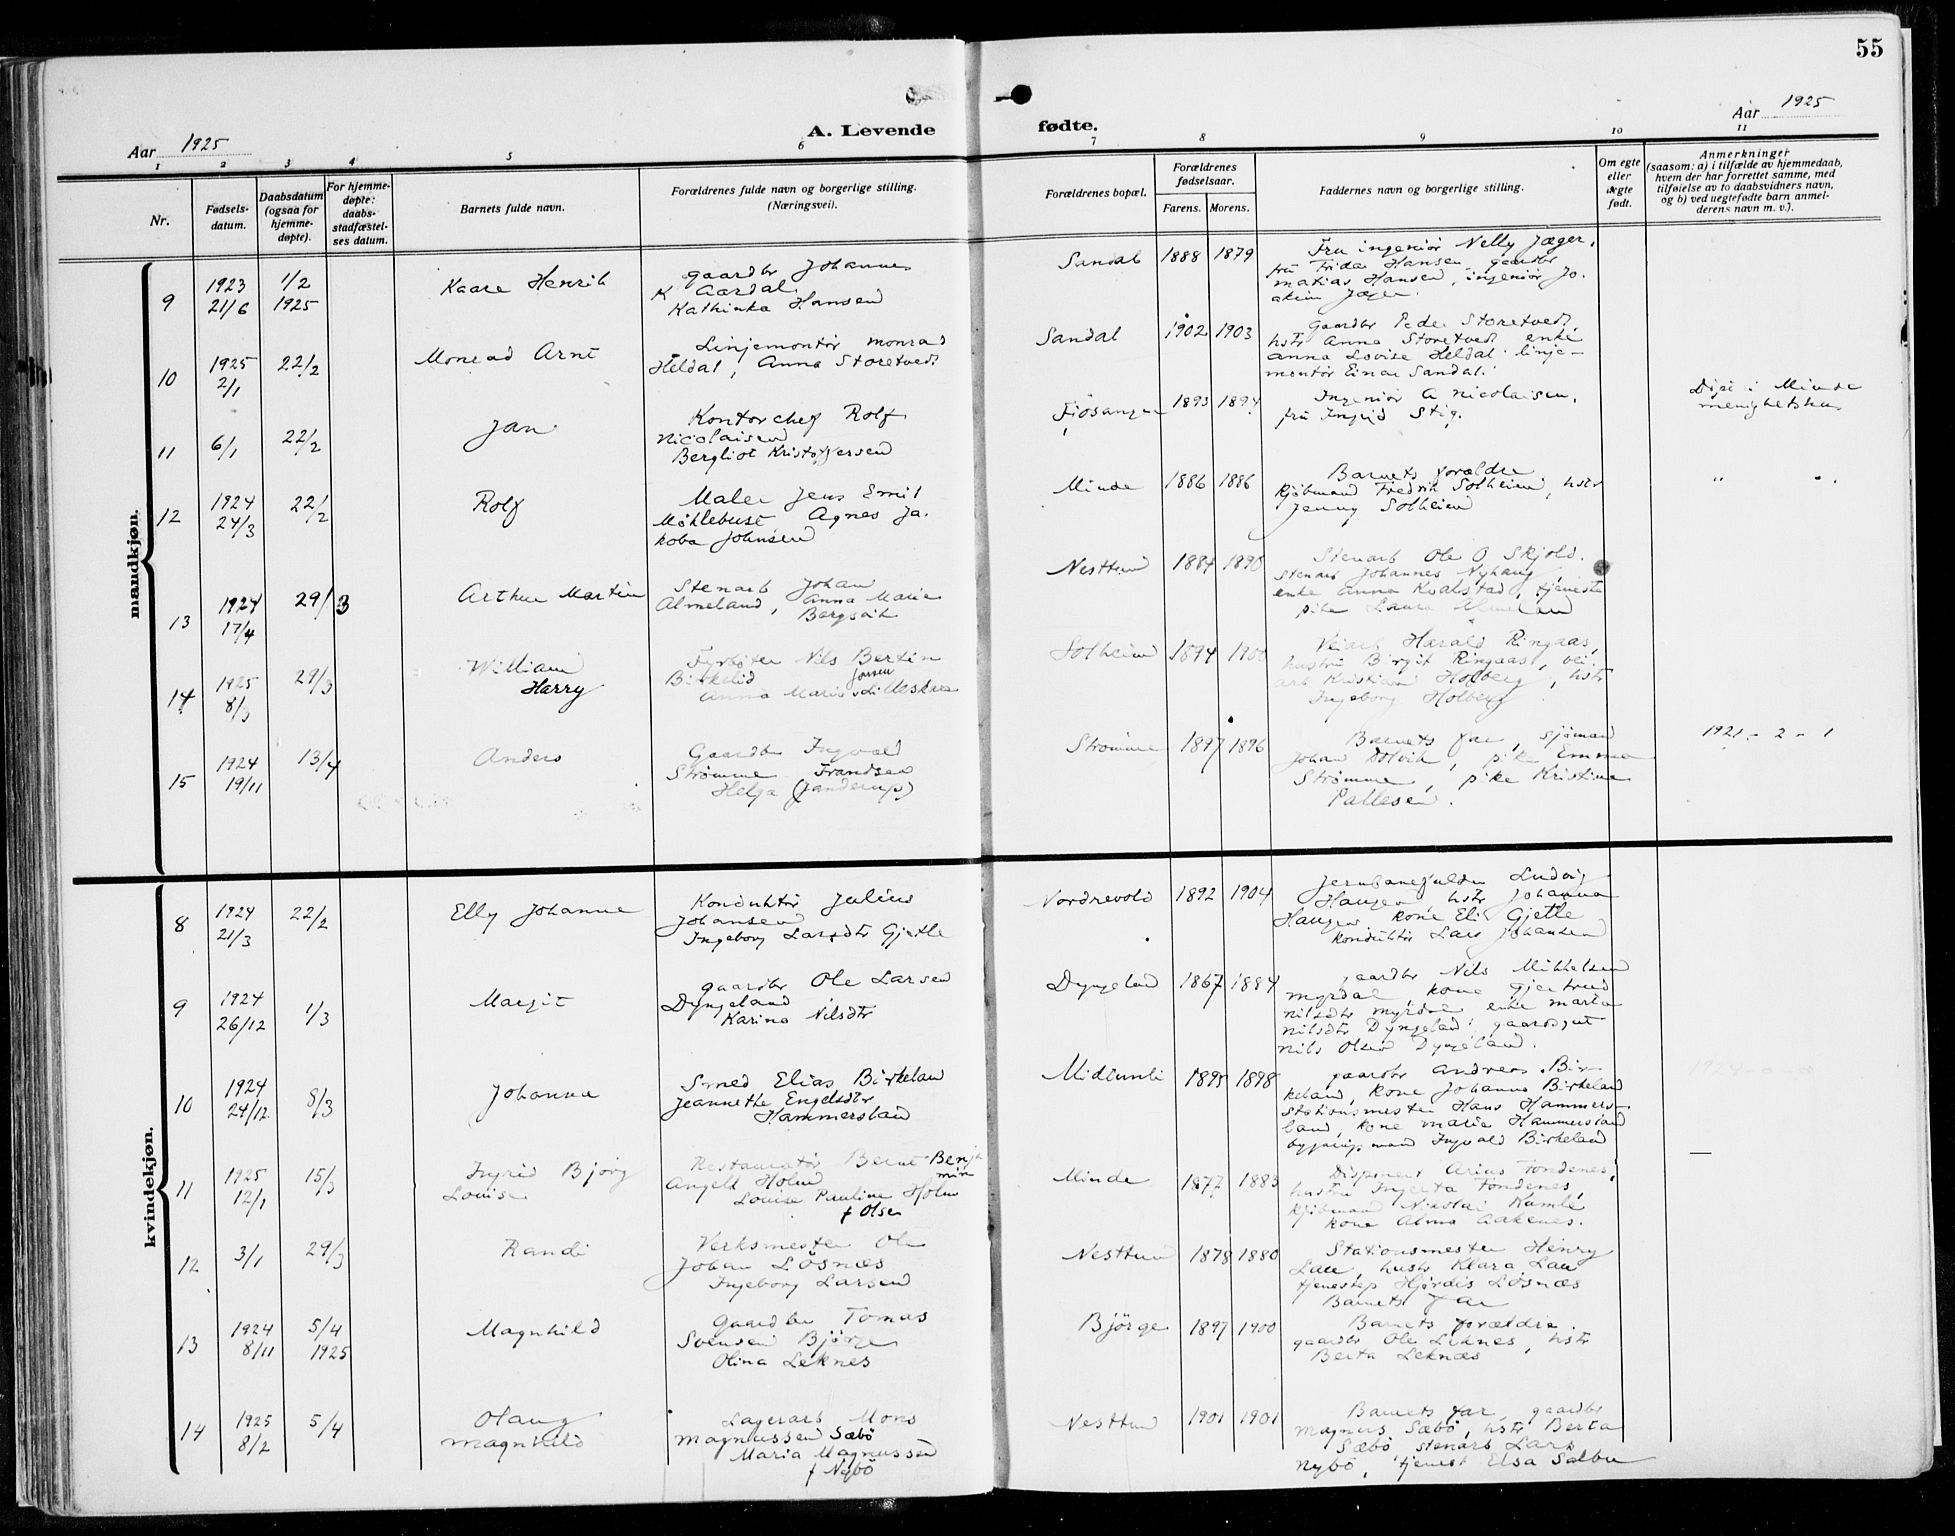 55
A. Levende fødte.
Aar 1925
Aar 1925
1 2 3 4 5 6 7 8 9 10 11
Nr.
Fødsels-
datum.
Daabsdatum
(ogsaa for
hjemme-
døpte).
For hjemme-
døpte:
daabs-
stadfæstel-
ses datum.
Barnets fulde navn.
Forældrenes fulde navn og borgerlige stilling.
(Næringsvei).
Forældrenes bopæl.
Forældrenes
fødselsaar.
Farens. Morens.
Faddernes navn og borgerlige stilling.
Om egte
eller
uegte
født.
Anmerkninger
(saasom: a) i tilfælde av hjemmedaab,
hvem der har forrettet samme, med
tilføielse av to daabsvidners navn,
og b) ved uegtefødte barn anmel-
derens navn m. v.).
mandkjøn.
9
1923
21/6
1/2
1925
Kaare Henrik
gaardbr Johannes
K Aardal
Kathinka Hansen
Sandal
1888 1879
Fru ingeniør Nelly Jæger,
fru Frida Hansen, gaardbr
Matias Hansen, ingeniør Jo-
akim Jæger.
10
1925
2/1
22/2
Monrad Arnt
Linjemontør Monrad
Heldal, Anna Storetvedt
Sandal
1902 1903
Gaardbr Peder Storetvedt,
hstr Anna Storetvedt enke
Anna Lovise Heldal linje-
montør Einar Sandal.
11
6/1
22/2
Jan
Kontorchef Rolf
Nicolaisen
Bergliot Kristoffersen
Fjösanger
1893 1894
Ingeniør A Nicolaisen,
fru Ingrid Stig.
Döpt i Minde
menighetshus
12
1924
24/3
22/2
Rolf
Maler Jens Emil
Møhlebust, Agnes Ja-
koba Johnsen
Minde
1886 1886
Barnets forældre
kjöbmand Fredrik Solheim, hstr
Jenny Solheim
" "
13
1924
17/4
29/3
Arthur Martin
Stenarb Johan
Almeland, Anna Marie
Bergsvik
Nesttun
1884 1890
Stenarb Ole O Skjold.
stenarb Johannes Nyhaug,
enke Anna Kvalstad, tjeneste
pike Laura Almeland
14
1925
8/3
29/3
William
Harry
Fyrböter Nils Bertin
Birkelid
Anna Marie Jonsen Litleskare
Solheim
1894 1900
Veiarb Harald Ringaas,
hustru Birgit Ringaas, vei-
arb Kristian Holberg, hstr
Ingeborg Holberg
15
1924
19/11
13/4
Anders
Gaardbr Ingvald
Strømme Frandsen
Helga (Janderup)
Strømme
1897 1896
Barnets far, sjömand
Johan Dolvik, pike Emma
Strømme, pike Kristine
Pallesen.
1921 - 2 - 1
kvindekjøn.
8
1924
21/3
22/2
Elly Johanne
Konduktör Julius
Johansen
Ingeborg Larsdtr Gjetle
Nordrevold
1892 1904
Jernbanefuldm Ludvig
Haugen, hstr Johanna
Haugen, kone Eli Gjetle
konduktör Lars Johansen
9
1924
26/12
1/3
Margit
gaardbr Ole Larsen
Dyngeland
Karina Nilsdtr
Dyngeland
1867 1884
gaardbr Nils Mikkelsen
Myrdal kone Gjertrud
Nilsdtr Myrdal enke Marta
Nilsdtr Dyngeland, gaardgut
Nils Olsen Dyngeland.
10
1924
24/12
8/3
Johanna
Smed Elias Birkeland
Jeannethe Engelsdtr
Hammersland
Midtunli
1895 1898
gaardbr Andreas Bir-
keland, kone Johanne Birkeland
Stationsmester Hans Hammers-
land, kone Marie Hammersland
bygningsmand Ingvald Birkeland
1924 - 0 - 0
11
1925
12/1
15/3
Ingrid Bjørg
Louise
Restauratör Bernt Benja-
min
Angell Holm
Louise Pauline Holm
f Olsen
Minde
1877 1883
Disponent Arius Tondenes,
hustru Ingerta Tondenes,
kjöbmand Nikolai Kumle
kone Alma Aakenes.
12
3/1
29/3
Randi
Verksmester Ole
Johan Løsnæs
Ingeborg Larsen
Nesttun
1878 1880
Stationsmester Henry
Lau, hustr Klara Lau
tjenestep Hjördis Løsnæs
Barnets far
13
1924
8/11
5/4
1925
Magnhild
Gaardbr Tomas
Svensen Bjørge
Olina Leknes
Bjørge
1897 1900
Barnets forældre.
gaardbr Ole Leknes, hstr
Berta Leknes
14
1925
8/2
5/4
Olaug
Magnhild
Lagerarb Mons
Magnussen Sæbö
Maria Magnussen
f Nybö
Nesttun
1901 1901
Barnets far, gaardbr
Magnus Sæbö, hstr Berta
Sæbö, stenarb Lars
Nybö, tjenest Elsa Salbu